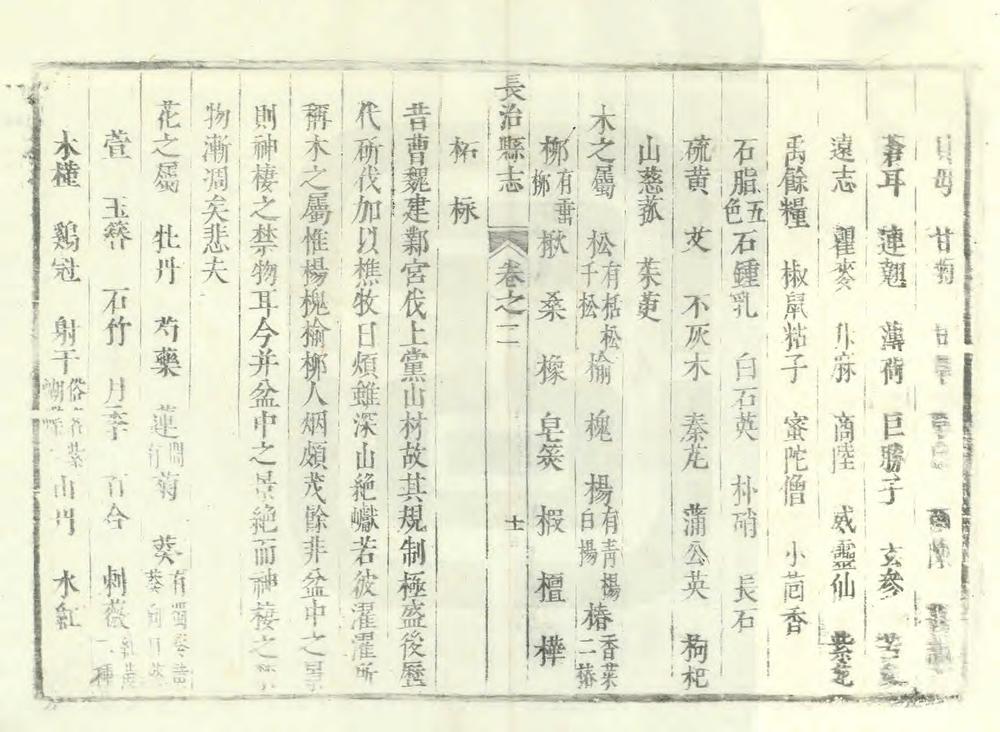 貝母 甘菊
蒼耳 連翹 薄荷 巨勝子 玄參
遠志 瞿麥 升麻 商陸 威靈仙 紫菀
禹餘糧 椒鼠粘子 蜜陀僧 小茴香
石脂五色石鍾乳 白石英 朴硝 長石
硫黄 艾 不灰木 秦艽 蒲公英 枸杞
山慈菰 茱萸
木之屬 松有栝松千松 榆 槐 楊有青楊白楊 椿香菜二椿
柳有垂柳 楸 桑 橡 皂筴 椵 檀 樺
長治縣志 卷之二 十二
柘 棶
昔曹魏建鄴宮伐上黨山材故其規制極盛後歷
代斫伐加以樵牧日煩雖深山絶巘若彼濯濯所
稱木之屬惟楊槐榆柳人烟頗茂餘非盆中之景
則神棲之禁物耳今并盆中之景絶而神棲之禁
物漸凋矣悲夫
花之屬 牡丹 芍藥 蓮 菊 葵
萱 玉簪 石竹 月季 百合 刺薇 二種
木槿 鷄冠 射干 山丹 水紅